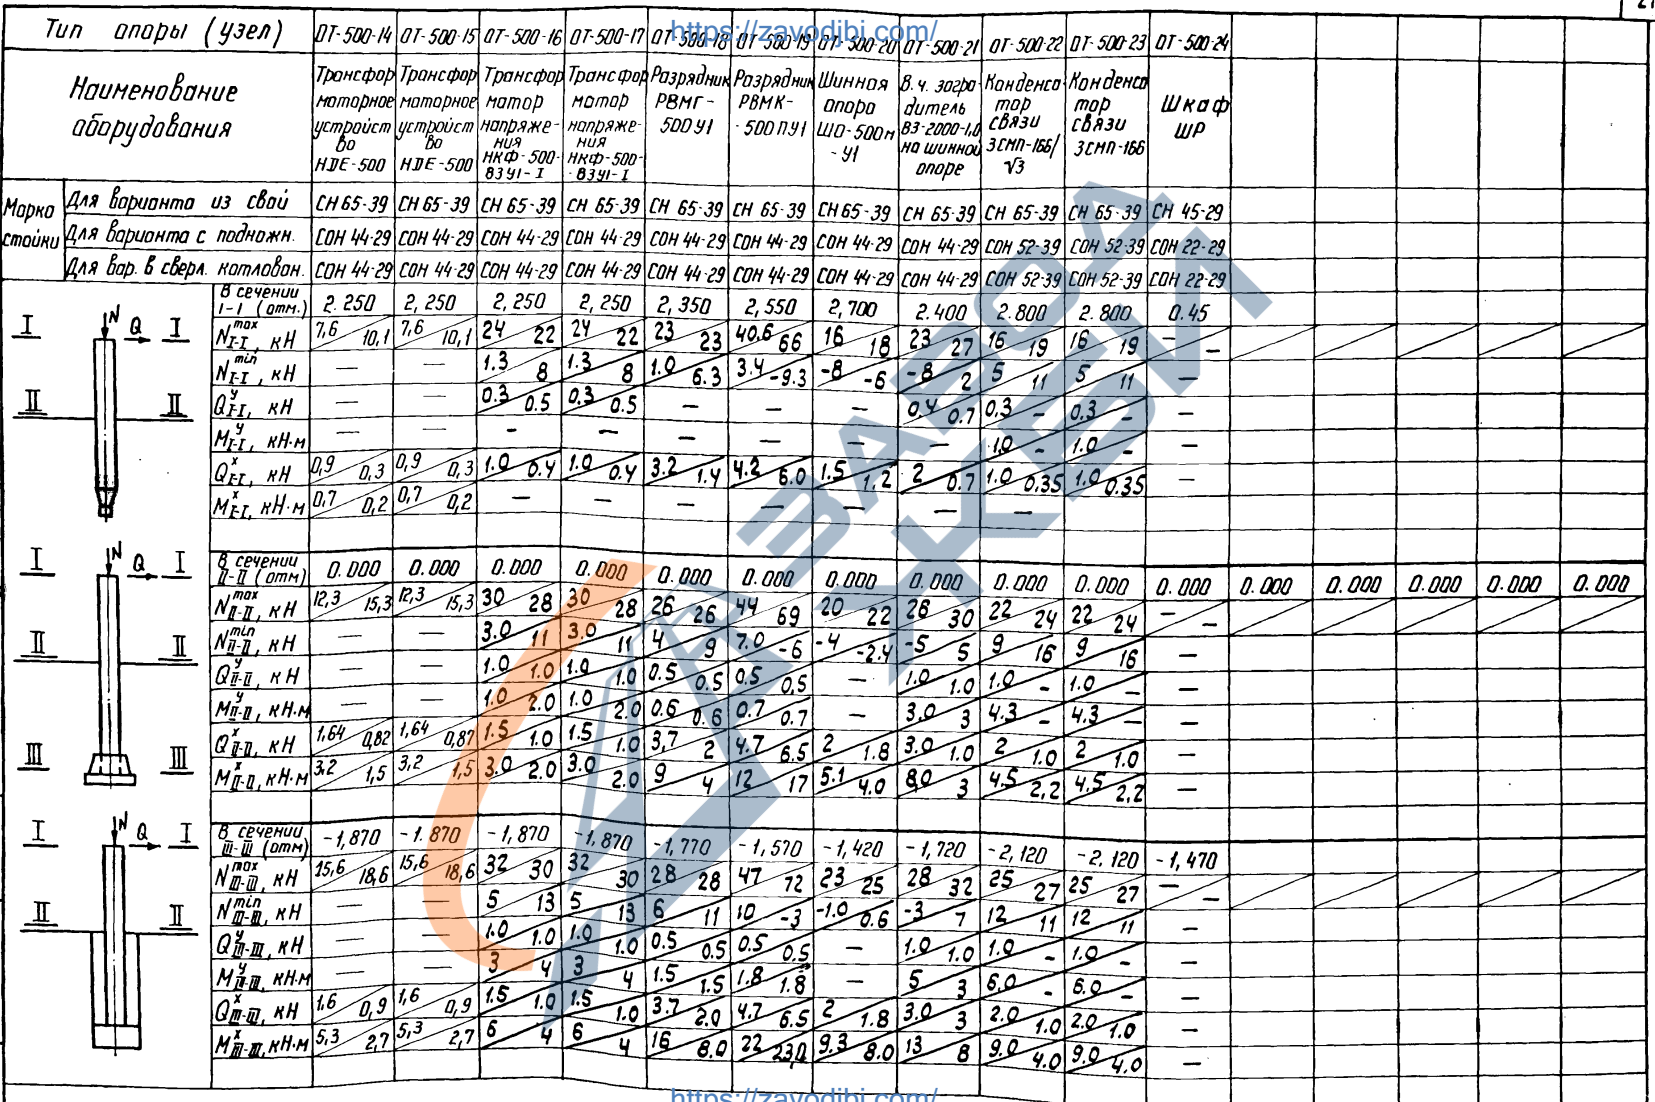 21
https://zavodjbi.com/
Тип опоры (узел) ОТ-500-14 ОТ-500-15 ОТ-500-16 ОТ-500-17 ОТ-500-18 ОТ-500-19 ОТ-500-20 ОТ-500-21 ОТ-500-22 ОТ-500-23 ОТ-500-24
Наименование оборудования
Трансфор маторное устройст во НДЕ-500
Трансфор маторное устройст во НДЕ-500
Трансфор матор напряже- ния НКФ-500- 83У1-I
Трансфор матор напряже- ния НКФ-500- 83У1-I
Разрядник РВМГ- 500 У1
Разрядник РВМК- 500 ПУ1
Шинная опора ШО-500м -У1
В.ч. загра- дитель ВЗ-2000-1,0 на шинной опоре
Конденса- тор связи 3СМП-166/ √3
Конденса тор связи 3СМП-166
Шкаф ШР
Марка стойки
Для варианта из свай СН 65-39 СН 65-39 СН 65-39 СН 65-39 СН 65-39 СН 65-39 СН 65-39 СН 65-39 СН 65-39 СН 65-39 СН 45-29
Для варианта с подножн. СОН 44-29 СОН 44-29 СОН 44-29 СОН 44-29 СОН 44-29 СОН 44-29 СОН 44-29 СОН 44-29 СОН 52-39 СОН 52-39 СОН 22-29
Для вар. в сверл. котлован. СОН 44-29 СОН 44-29 СОН 44-29 СОН 44-29 СОН 44-29 СОН 44-29 СОН 44-29 СОН 44-29 СОН 52-39 СОН 52-39 СОН 22-29
В сечении I-I (отм.) 2.250 2,250 2,250 2,250 2,350 2,550 2,700 2.400 2.800 2.800 0.45
N max I-I, кН 7,6 10,1 7,6 10,1 24 22 24 22 23 23 40.6 66 16 18 23 27 16 19 16 19 — —
N min I-I, кН — — 1.3 8 1.3 8 1.0 6.3 3.4 -9.3 -8 -6 -8 2 5 11 5 11 —
Q y I-I, кН — — 0.3 0.5 0.3 0.5 — — — 0.4 0.7 0,3 - 0,3 - —
M y I-I, кН·м — — - — — — — — 1.0 - 1.0 - —
Q x I-I, кН 0,9 0,3 0,9 0,3 1.0 0.4 1.0 0.4 3.2 1.4 4.2 6.0 1.5 1.2 2 0.7 1.0 0.35 1.0 0.35 —
M x I-I, кН·м 0,7 0,2 0,7 0,2 — — — — — — —
I N Q I
II II
В сечении II-II (отм) 0.000 0.000 0.000 0.000 0.000 0.000 0.000 0.000 0.000 0.000 0.000 0.000 0.000 0.000 0.000 0.000
N max II-II, кН 12,3 15,3 12,3 15,3 30 28 30 28 26 26 44 69 20 22 26 30 22 24 22 24 — —
N min II-II, кН — — 3.0 11 3.0 11 4 9 7.0 -6 -4 -2.4 -5 5 9 16 9 16 —
Q y II-II, кН — — 1.0 1.0 1.0 1.0 0.5 0.5 0.5 0,5 — 1.0 1.0 1.0 - 1.0 - —
M y II-II, кН·м 1.0 2.0 1.0 2.0 0.6 0.6 0.7 0.7 — 3.0 3 4.3 - 4.3 — —
Q x II-II, кН 1,64 0,82 1,64 0,87 1.5 1.0 1.5 1.0 3,7 2 4.7 6.5 2 1.8 3.0 1.0 2 1.0 2 1.0 —
M x II-II, кН·м 3,2 1,5 3,2 1,5 3.0 2.0 3.0 2.0 9 4 12 17 5.1 4.0 8,0 3 4.5 2,2 4.5 2,2 —
I N Q I
II II
III III
В сечении III-III (отм) -1,870 -1.870 -1,870 -1,870 -1,770 -1,570 -1,420 -1,720 -2,120 -2.120 -1,470
N max III-III, кН 15,6 18,6 15,6 18,6 32 30 32 30 28 28 47 72 23 25 28 32 25 27 25 27 — —
N min III-III, кН — — 5 13 5 13 6 11 10 -3 -1.0 0.6 -3 7 12 11 12 11 —
Q y III-III, кН — — 1.0 1.0 1.0 1.0 0.5 0.5 0.5 0.5 — 1.0 1.0 1.0 - 1.0 - —
M y III-III, кН·м — — 3 4 3 4 1.5 1.5 1.8 1.8 — 5 3 6.0 - 6.0 - —
Q x III-III, кН 1,6 0,9 1,6 0,9 1.5 1.0 1.5 1.0 3.7 2.0 4.7 6.5 2 1.8 3.0 3 2.0 1.0 2.0 1.0 —
M x III-III, кН·м 5,3 2,7 5,3 2,7 6 4 6 4 16 8.0 22 23,0 9.3 8.0 13 8 9.0 4.0 9.0 4.0 —
I N Q I
II II
ЗАВОД
ЖБИ
https://zavodjbi.com/